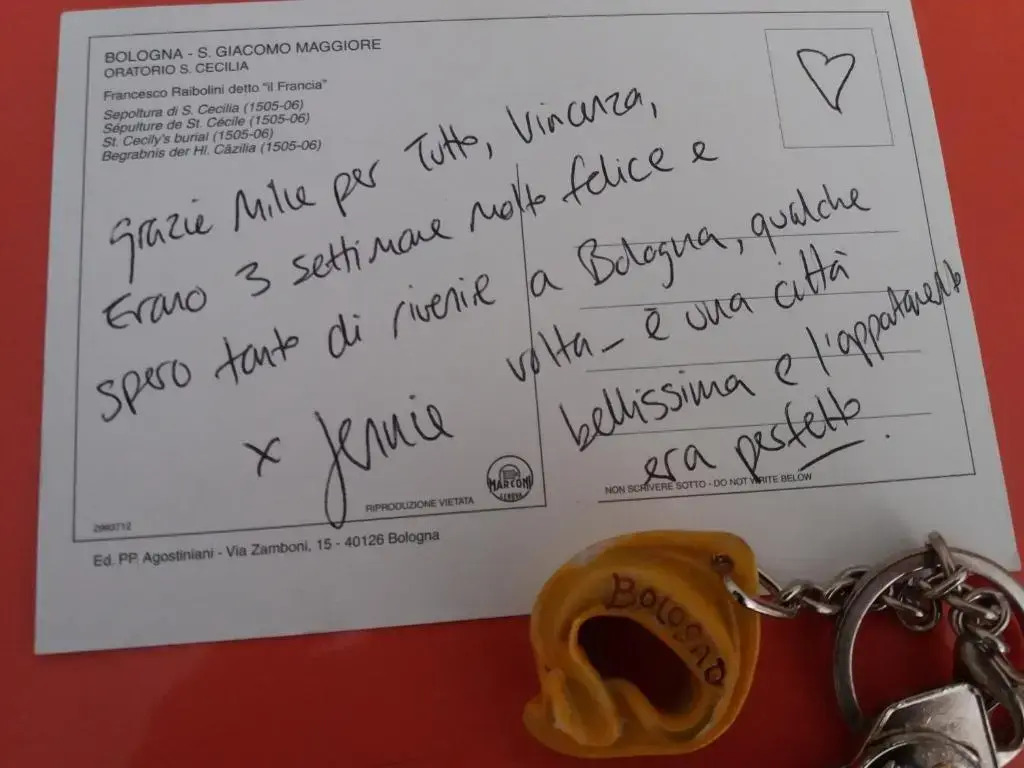 BOLOGNA - S. GIACOMO MAGGIORE
ORATORIO S. CECILIA
Francesco Raibolini detto "il Francia"
Sepoltura di S. Cecilia (1505-06)
Sépulture de St. Cécile (1505-06)
St. Cecily's burial (1505-06)
Begrabnis der Hl. Căzilia (1505-06)
Grazie Mille per Tutto, Vincenza,
Erano 3 settimane molto felice e
spero tanto di rivenire a Bologna, qualche
volta - è una città
bellissima e l'appartamento
era perfetto.
x Jennie
RIPRODUZIONE VIETATA
MARCONI
GENOVA
NON SCRIVERE SOTTO - DO NOT WRITE BELOW
Ed. PP. Agostiniani - Via Zamboni, 15 - 40126 Bologna
BOLOGNA